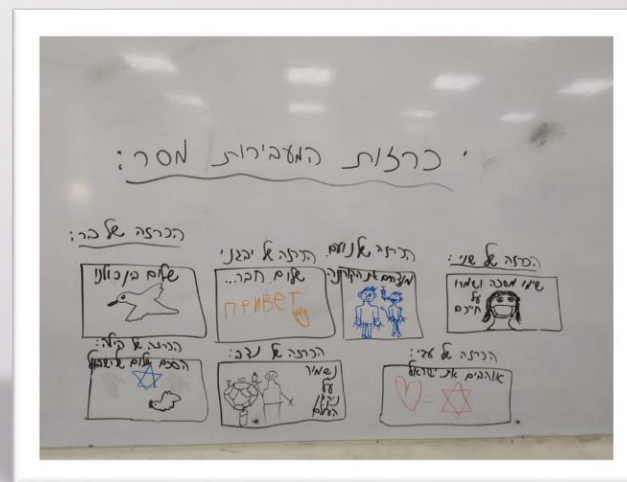 כרזות המעבירות מסר:
הכרזה של שני:
שימו מסכה ושמרו
על
חייכם
הכרזה של נועם:
מנצחים את הקורונה
הכרזה של יבגני
שלום חבר...
ПРИВЕТ
הכרזה של בר:
שלום בין כולנו
הכרזה של עדי:
אוהבים את ישראל
הכרזה של נדב:
נשמור
על
ניקיון
העולם
הכרזה של
הסכם שלום